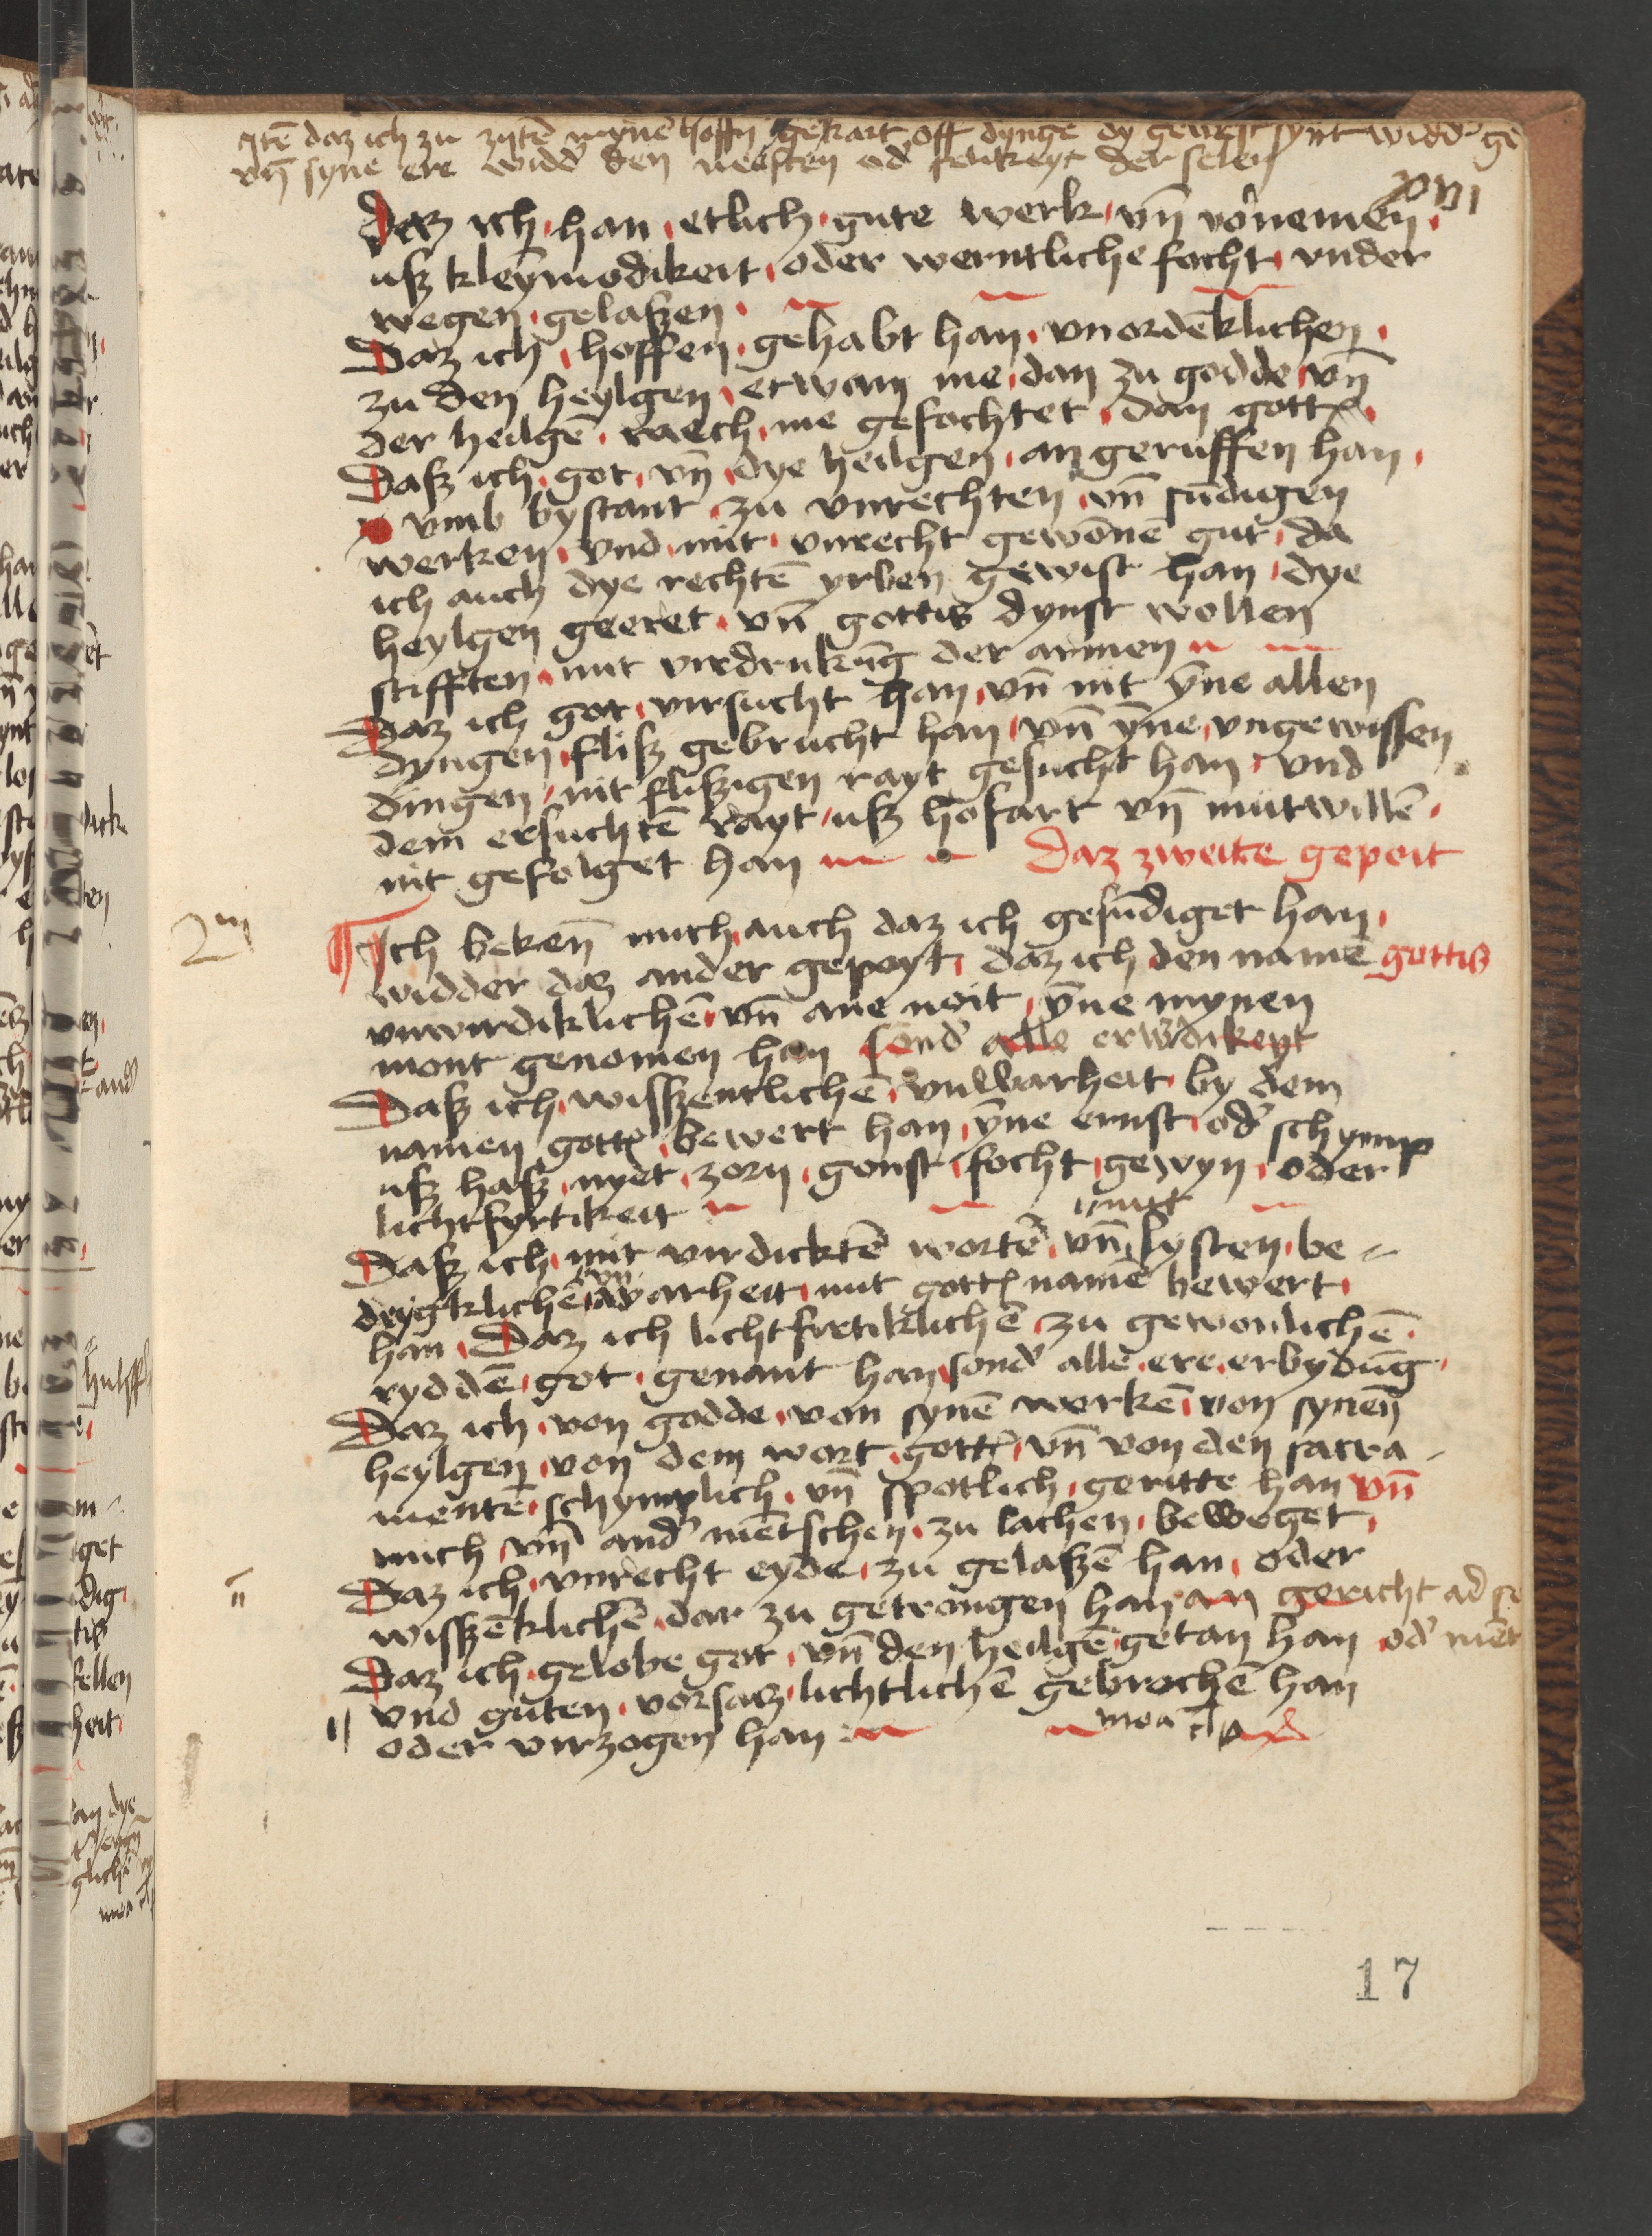 Jtē daz ich zu zytē mynē hoffn gekart off dynge dy gewest synt widd' ge
vn̄ syne ere widd' den neesten od' selikeyt der selen
xvıı
Daz ich han etlich gute werk vn̄ vornemen
uß kleynmodikeit oder werntliche focht vnder
wegen gelaßen
Daz ich hoffen gehabt han vnordēklichen
zu den heylgen etwan me dan zu godde vn̄
der heilgē raech me gefochtet dan gottz
Daß ich got vn̄ dye heilgen an geruffen han
vmb bystant zu vnrechten vn̄ sūdigen
werken vnd mit vnrecht gewōnē gut da
ich auch dye rechtē yrben gewist han dye
heylgen geeret vn̄ gottis dynst wollen
stifften mit virdrukūg der armen
Daz ich got virsucht han vn̄ nit yn̄e allen
dyngen fliß gebrucht han vn̄ yn̄e vngewissen
dingen nit flißigen rayt gesucht han vnd
dem ersuchtē rayt uß hofart vn̄ mutwillē
nit gefolget han Daz zweite gepoit
2m
Jch bekeñ mich auch daz ich gesūdiget han
widder daz ander gepoyt daz ich den namē gottis
vnwirdiklichē vn̄ ane noit yn̄e mynen
mont genomen han sond' alle erwirdikeyt
Daß ich wißentlichē vnwarheit by dem
namen gottz bewert han yn̄e ernst od' schymp
uß haß nydt zorn gonst focht gewyn oder
lichtfyrtikeit
Daß ich mit virdicktē wortē vn̄ mit lysten be
drygklichē vnwarheit mit gottz namē bewert
han Daz ich lichtfretiklichē zu gewonlichē
ryddē got genant han sond' alle ere erbydūg
Daz ich von godde von synē werkē von synen
heylgen von dem wort gottz vn̄ von den sacra
mentē schymplich vn̄ spotlich geritte han vn̄
mich vn̄ and' mētschen zu lachen beweget
Daz ich vnrecht eyde zu gelaßē han oder
wißēklichē dar zu getrongen han an gericht ad
Daz ich gelobe got vn̄ den heilgē getan han od' mēt
vnd guten vorsatz lichtlichē gebrochē han
oder virzogen han
17